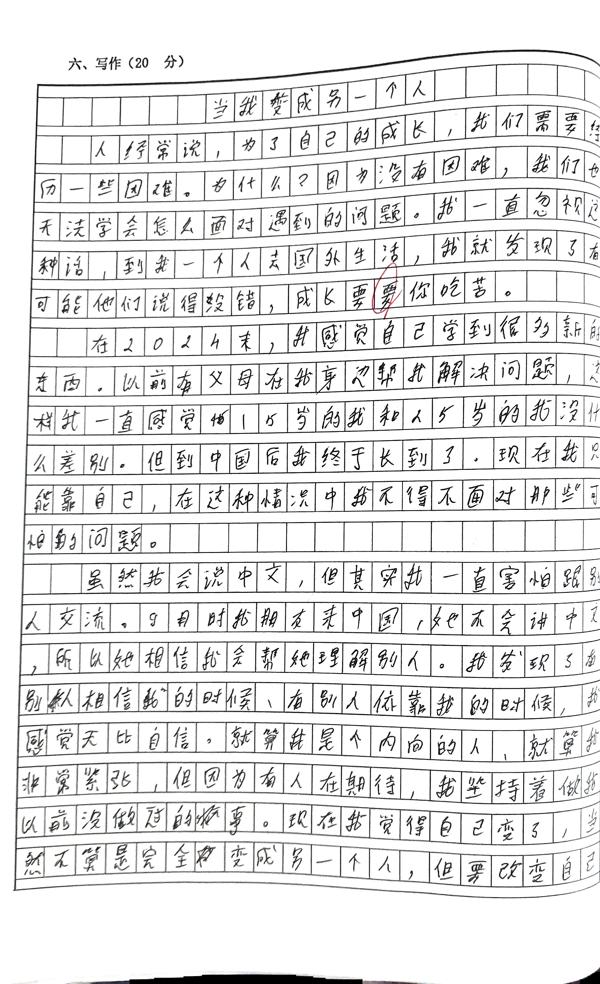 六、写作（20 分）
当我变成另一个人
人经常说，为了自己的成长，我们需要经
历一些困难。为什么？因为没有困难，我们也
无法学会怎么面对遇到的问题。我一直忽视这
种话，到我一个人去国外生活，我就发现了有
可能他们说得没错，成长要要你吃苦。
在2024末，我感觉自己学到很多新的
东西。以前有父母在我身边帮我解决问题，这
样我一直感觉 15岁的我和25岁的我没什
么差别。但到中国后我终于长到了。现在我只
能靠自己，在这种情况中我不得不面对那些可
怕的问题。
虽然我会说中文，但其实我一直害怕跟别
人交流。9月时我朋友来中国，她不会讲中文
，所以她相信我会帮她理解别人。我发现了有
别人相信我的时候、有别人依靠我的时候，我
感觉无比自信。就算我是个内向的人、就算我
非常紧张，但因为有人在期待，我坚持着做我
以前没做过的事。现在我觉得自己变了，当
然不算是完全变成另一个人，但要改变自己